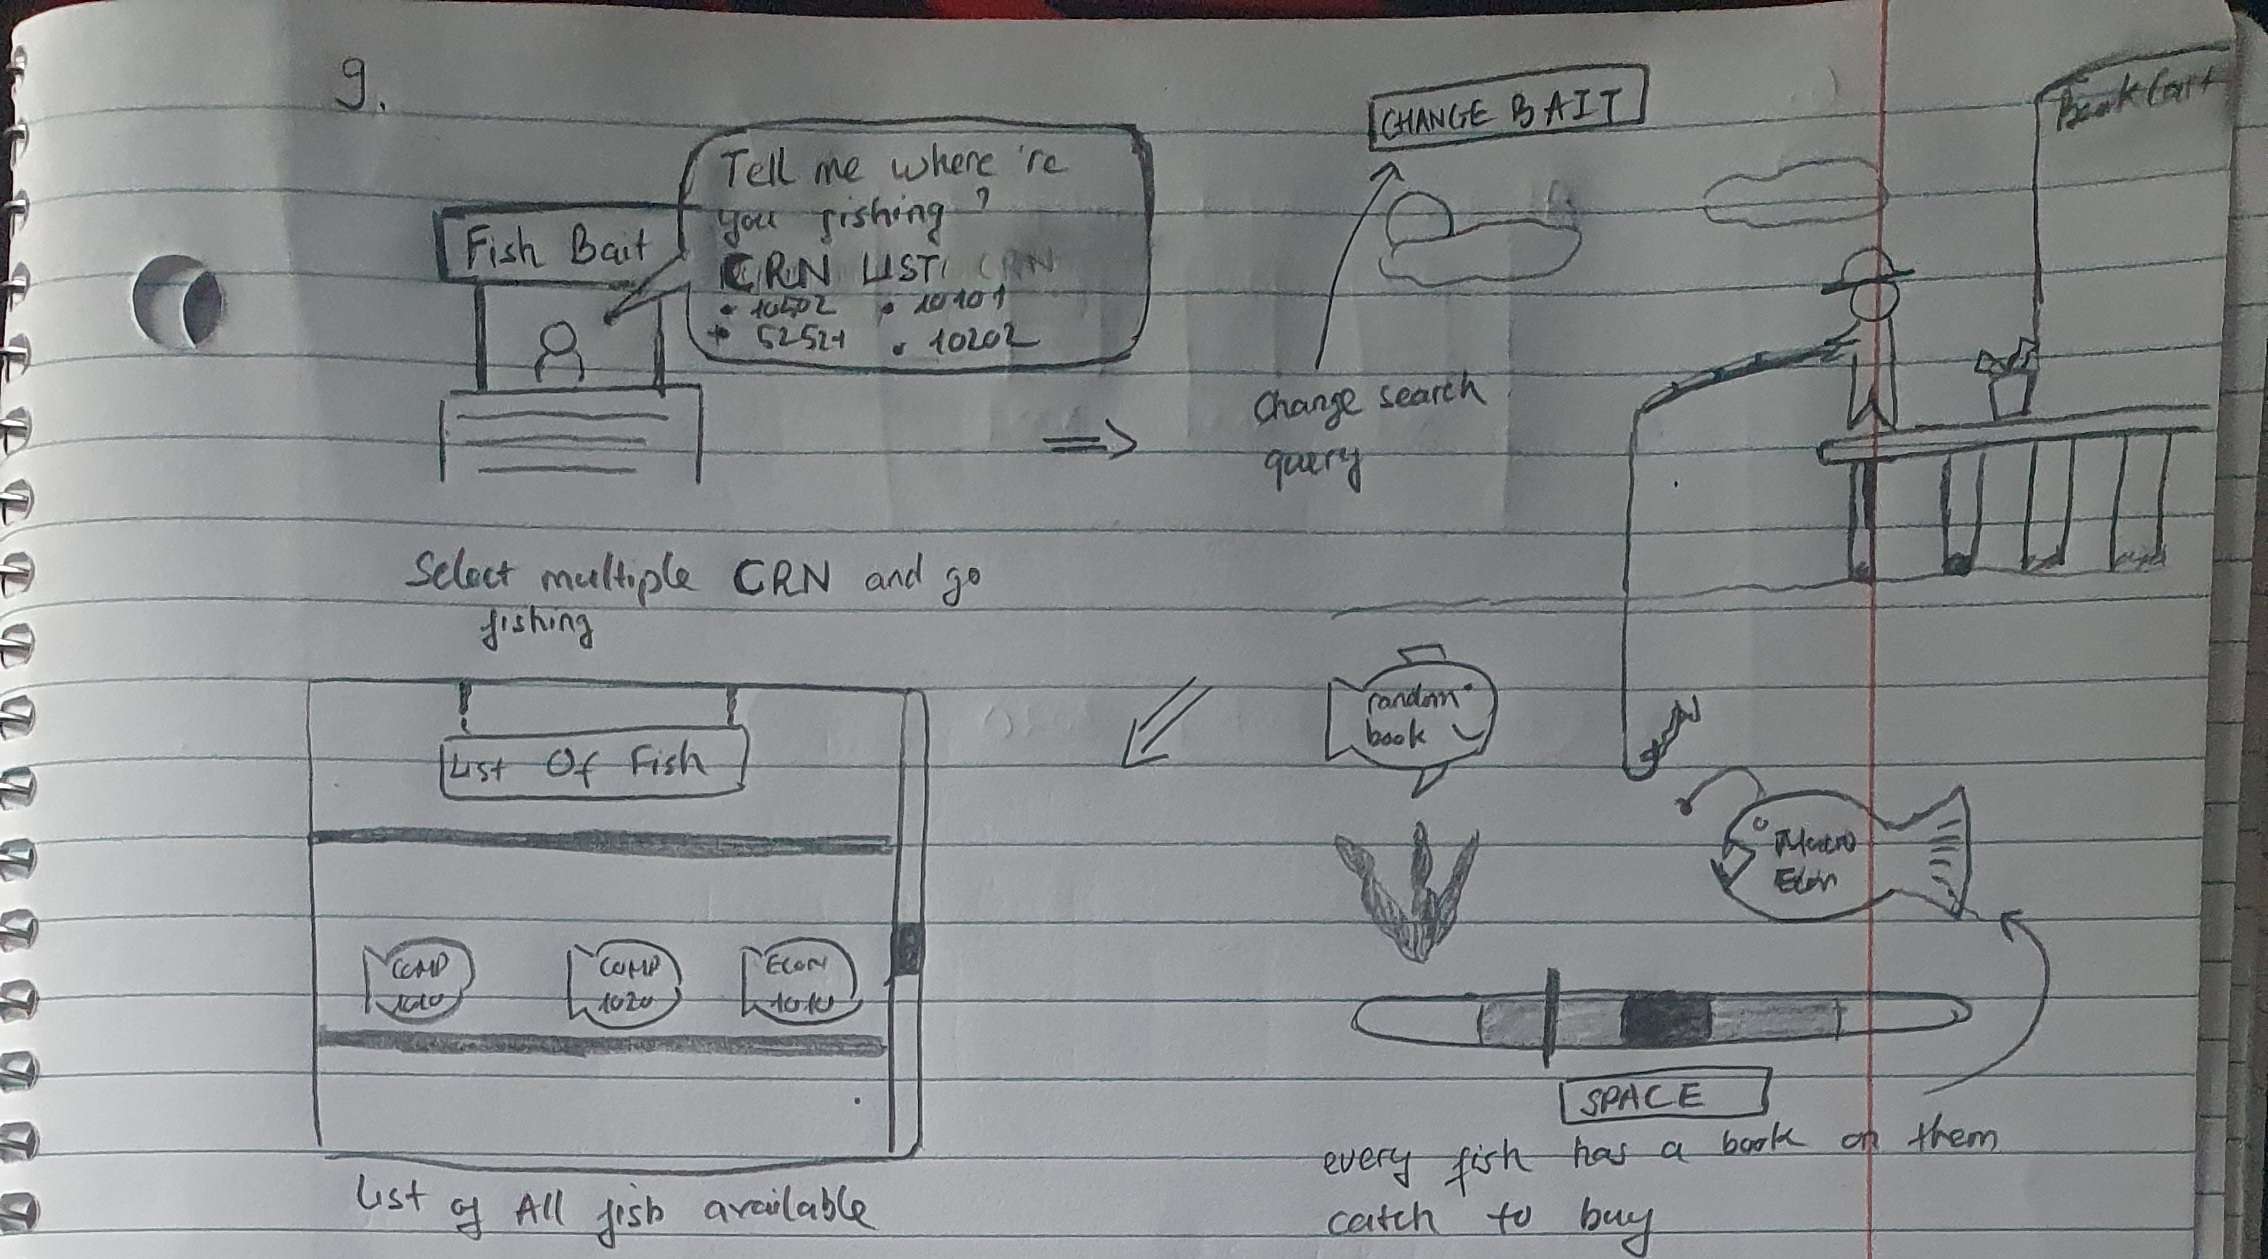 9.
Fish Bait
Tell me where 're
you fishing?
CRN LIST: CRN
• 10502 • 10101
• 52521 • 10202
Select multiple CRN and go
fishing
CHANGE BAIT
Change search
query
Book Cart
random
book
Macro
Econ
SPACE
every fish has a book on them
catch to buy
List Of Fish
COMP
1010
COMP
1020
ECON
1010
List of All fish available